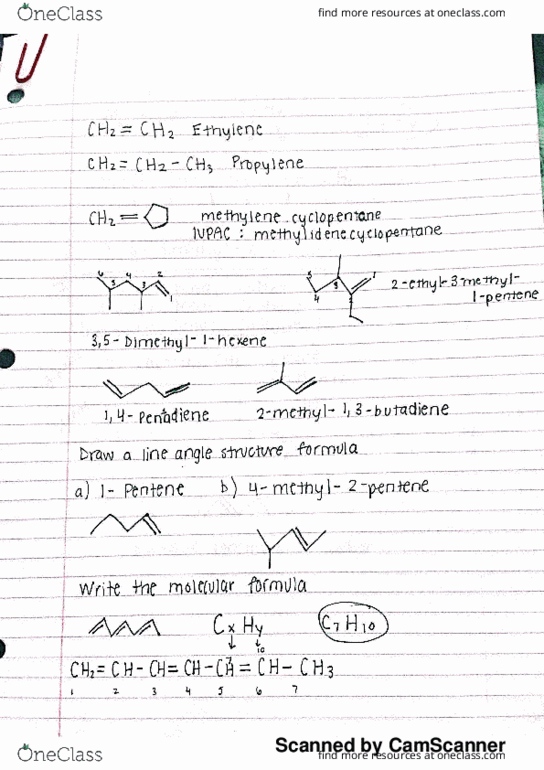 OneClass
find more resources at oneclass.com
CH2 = CH2 Ethylene
CH2 = CH2 - CH3 Propylene
CH2 = methylene cyclopentane
IUPAC : methylidenecyclopentane
6 5 4 3 2 1
5 4 3 1 2-ethyl-3-methyl-
1-pentene
3,5-Dimethyl-1-hexene
1,4-Pentadiene 2-methyl-1,3-butadiene
Draw a line angle structure formula
a) 1-Pentene b) 4-methyl-2-pentene
Write the molecular formula
Cx Hy C7H10
7 10
CH2 = CH - CH = CH - CH = CH - CH3
1 2 3 4 5 6 7
Scanned by CamScanner
OneClass
find more resources at oneclass.com